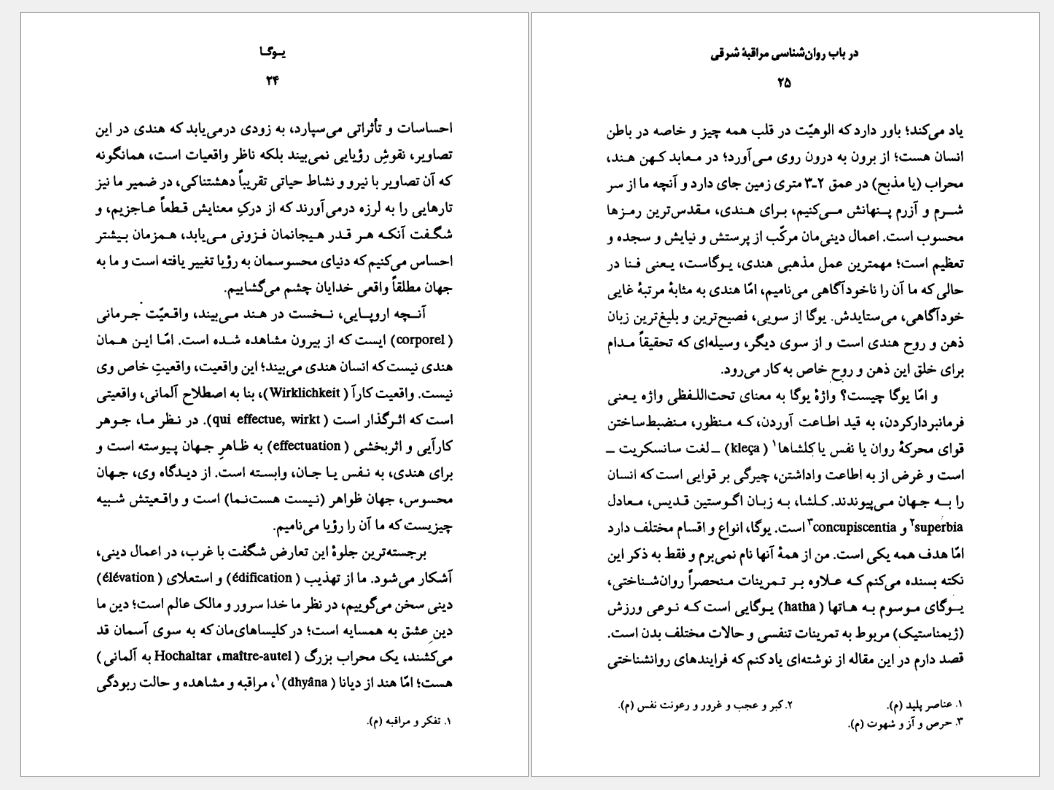 یـوگـا
۲۴
احساسات و تأثراتی می‌سپارد، به زودی درمی‌یابد که هندی در این
تصاویر، نقوشِ رؤیایی نمی‌بیند بلکه ناظر واقعیات است، همانگونه
که آن تصاویر با نیرو و نشاط حیاتی تقریباً دهشتناکی، در ضمیر ما نیز
تارهایی را به لرزه درمی‌آورند که از درکِ معنایش قـطعاً عـاجزیم، و
شگـفت آنکـه هـر قـدر هـیجانمان فـزونی مـی‌یابد، هـمزمان بـیشتر
احساس می‌کنیم که دنیای محسوسمان به رؤیا تغییر یافته است و ما به
جهان مطلقاً واقعی خدایان چشم می‌گشاییم.
آنـچه اروپـایی، نـخست در هـند مـی‌بیند، واقـعیّت جـرمانی
(corporel) ایست که از بیرون مشاهده شده است. امّـا ایـن هـمان
هندی نیست که انسان هندی می‌بیند؛ این واقعیت، واقعیتِ خاص وی
نیست. واقعیت کارآ (Wirklichkeit)، بنا به اصطلاح آلمانی، واقعیتی
است که اثـرگذار است (qui effectue, wirkt). در نـظر مـا، جـوهر
کارآیی و اثربخشی (effectuation) به ظـاهرِ جـهان پـیوسته است و
برای هندی، به نـفس یـا جـان، وابسته است. از دیـدگاه وی، جـهان
محسوس، جهان ظواهر (نـیست هست‌نـما) است و واقـعیتش شـبیه
چیزیست که ما آن را رؤیا می‌نامیم.
برجسته‌ترین جلوهٔ این تعارض شگفت با غرب، در اعمال دینی،
آشکار می‌شود. ما از تهذیب (édification) و استعلای (élévation)
دینی سخن می‌گوییم، در نظر ما خدا سرور و مالک عالم است؛ دین ما
دینِ عشق به همسایه است؛ در کلیساهای‌مان که به سوی آسمان قد
می‌کشند، یک محراب بزرگ (Hochaltar ،maître-autel به آلمانی)
هست؛ امّا هند از دیانا (dhyâna)۱، مراقبه و مشاهده و حالت ربودگی
۱. تفکر و مراقبه (م).
در باب روان‌شناسی مراقبهٔ شرقی
۲۵
یاد می‌کند؛ باور دارد که الوهیّت در قلب همه چیز و خاصه در باطن
انسان هست؛ از برون به درون روی مـی‌آورد؛ در مـعابد کـهن هـند،
محراب (یا مذبح) در عمق ۲ـ۳ متری زمین جای دارد و آنچه ما از سر
شـرم و آزرم پـنهانش مـی‌کنیم، بـرای هـندی، مـقدس‌ترین رمـزها
محسوب است. اعمال دینی‌مان مرکّب از پرستش و نیایش و سجده و
تعظیم است؛ مهمترین عمل مذهبی هندی، یـوگاست، یـعنی فـنا در
حالی که ما آن را ناخودآگاهی می‌نامیم، امّا هندی به مثابهٔ مرتبهٔ غایی
خودآگاهی، می‌ستایدش. یوگا از سویی، فصیح‌ترین و بلیغ‌ترین زبان
ذهن و روح هندی است و از سوی دیگر، وسیله‌ای که تحقیقاً مـدام
برای خلق این ذهن و روح خاص به کار می‌رود.
و امّا یوگا چیست؟ واژهٔ یوگا به معنای تحت‌اللـفظی واژه یـعنی
فرمانبردارکردن، به قید اطـاعت آوردن، کـه مـنظور، مـنضبط‌ساختن
قوای محرکهٔ روان یا نفس یا کِلشاها۱ (kleça) ـ لغت سانسکریت ـ
است و غرض از به اطاعت واداشتن، چیرگی بر قوایی است که انسان
را بـه جـهان مـی‌پیوندند. کـلشا، بـه زبـان اگـوستین قـدیس، مـعادل
superbia۲ و concupiscentia۳ است. یوگا، انواع و اقسام مختلف دارد
امّا هدف همه یکی است. من از همهٔ آنها نام نمی‌برم و فقط به ذکر این
نکته بسنده می‌کنم کـه عـلاوه بـر تـمرینات مـنحصراً روان‌شـناختی،
یـوگای مـوسوم بـه هـاتها (hatha) یـوگایی است کـه نـوعی ورزش
(ژیمناستیک) مربوط به تمرینات تنفسی و حالات مختلف بدن است.
قصد دارم در این مقاله از نوشته‌ای یاد کنم که فرایندهای روانشناختی
۱. عناصر پلید (م). ۲. کبر و عجب و غرور و رعونت نفس (م).
۳. حرص و آز و شهوت (م).